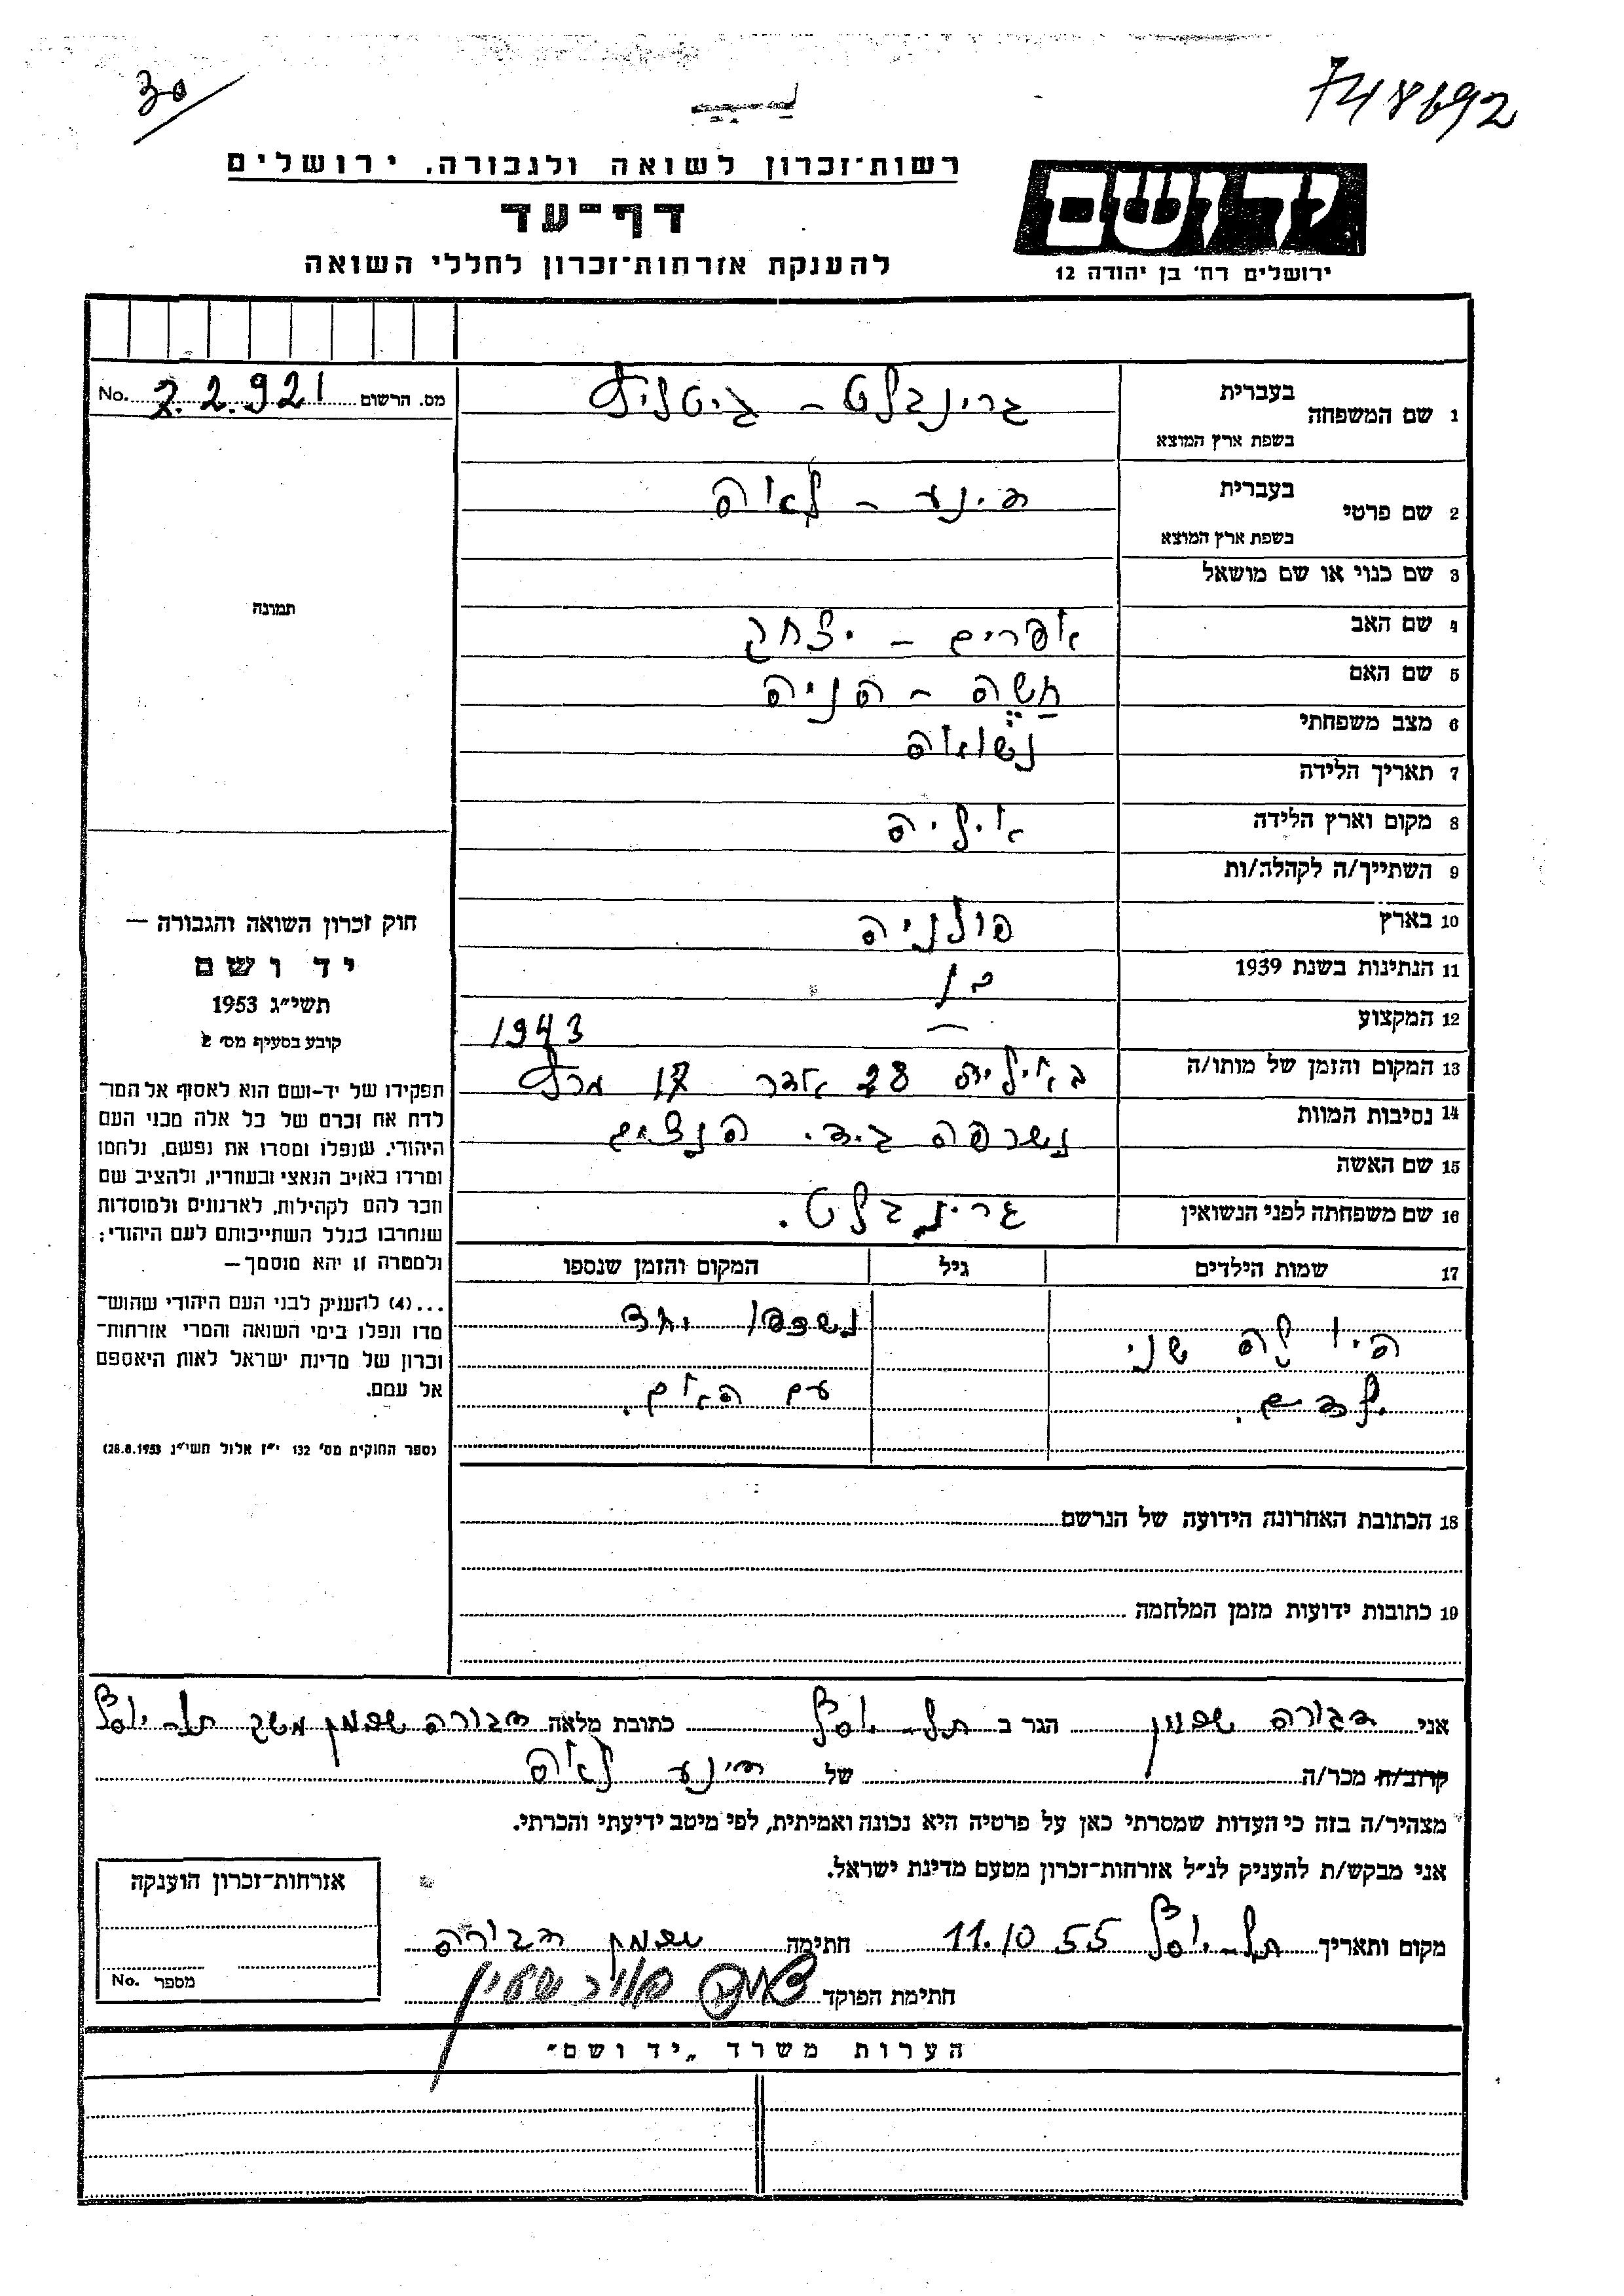 30
748692
רשות־זכרון לשואה ולגבורה. ירושלים
דף־עד
להענקת אזרחות־זכרון לחללי השואה
יד ושם
ירושלים רח׳ בן יהודה 12
מס. הרשום 2.2.921 No.
1 שם המשפחה בעברית גרינבלט -
בשפת ארץ המוצא
2 שם פרטי בעברית דינע - לאה
בשפת ארץ המוצא
3 שם כנוי או שם מושאל
4 שם האב אפרים - יצחק
5 שם האם חשה - הניה
6 מצב משפחתי נשואה
7 תאריך הלידה
8 מקום וארץ הלידה איליה
9 השתייך/ה לקהלה/ות
10 בארץ פולניה
11 הנתינות בשנת 1939
12 המקצוע —
1943
13 המקום והזמן של מותו/ה באיליה 28 אדר 17 מרץ
14 נסיבות המוות נשרפה בידי הנצים
15 שם האשה
16 שם משפחתה לפני הנשואין גרינבלט.
17 שמות הילדים גיל המקום והזמן שנספו
היו לה שני נשרפו יחד
ילדים. עם האם.
18 הכתובת האחרונה הידועה של הנרשם
19 כתובות ידועות מזמן המלחמה
תמונה
חוק זכרון השואה והגבורה —
יד ושם
תשי״ג 1953
קובע בסעיף מס׳ 2
תפקידו של יד-ושם הוא לאסוף אל המו־
לדת את זכרם של כל אלה מבני העם
היהודי, שנפלו ומסרו את נפשם, נלחמו
ומרדו באויב הנאצי ובעוזריו, ולהציב שם
וזכר להם לקהילות, לארגונים ולמוסדות
שנחרבו בגלל השתייכותם לעם היהודי;
ולמטרה זו יהא מוסמך—
...(4) להעניק לבני העם היהודי שהוש־
מדו ונפלו בימי השואה והמרי אזרחות־
זכרון של מדינת ישראל לאות היאספם
אל עמם.
(ספר החוקים מס׳ 132 י״ז אלול תשי״ג 28.8.1953)
אני דבורה שפמן הגר ב תל-יוסף כתובת מלאה דבורה שפמן משק תל-יוסף
קרוב/ה מכר/ה של דינע לאה
מצהיר/ה בזה כי העדות שמסרתי כאן על פרטיה היא נכונה ואמיתית, לפי מיטב ידיעתי והכרתי.
אני מבקש/ת להעניק לנ״ל אזרחות־זכרון מטעם מדינת ישראל.
מקום ותאריך תל-יוסף 11.10.55 חתימה שפמן דבורה
חתימת הפוקד
אזרחות־זכרון הוענקה
מספר No.
הערות משרד „יד ושם״